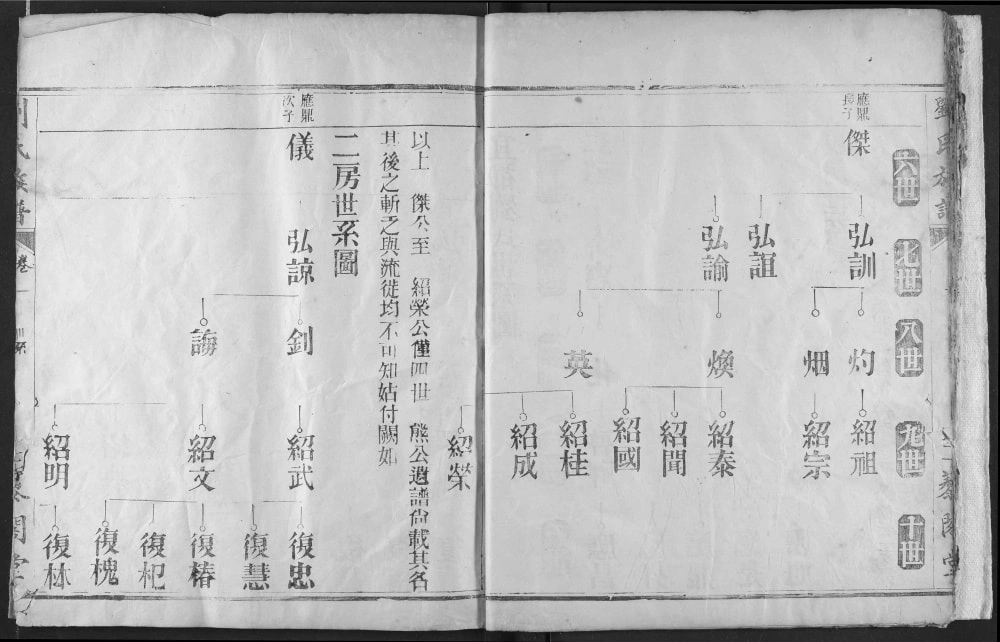 劉氏族譜
藜閣堂
六世
七世
八世
九世
十世
應鼎長子
傑
弘訓
弘誼
弘諭
灼
烟
煥
英
紹祖
紹宗
紹泰
紹聞
紹國
紹桂
紹成
紹榮
以上 傑公至 紹榮公僅四世 熊公遺譜尙載其名
其後之斬之與流徙均不可知姑付闕如
二房世系圖
應鼎次子
儀
弘諒
釗
誨
紹武
紹文
紹明
復忠
復慧
復椿
復杞
復槐
復林
氏族譜
卷一
藜閣堂